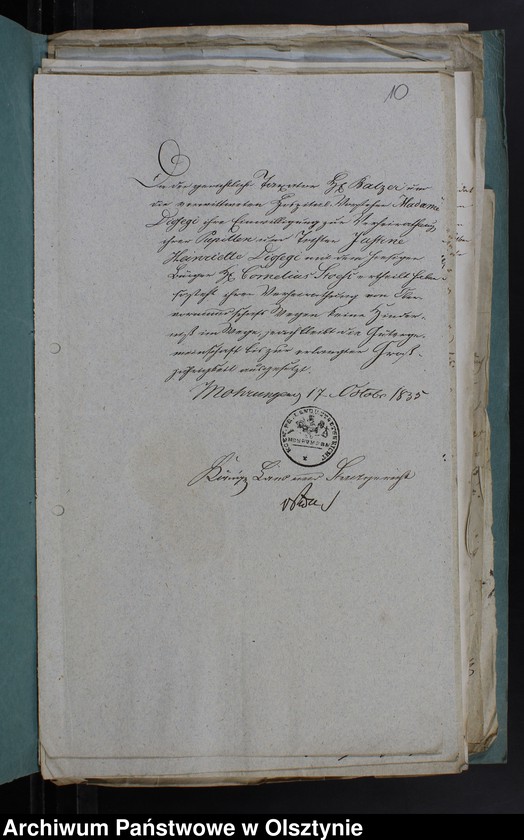 10
Da der gerichtliche Hr Balzer und
die verwittwete Madame
Digegi ihre Einwilligung zur Verheirathung
ihrer Pupillen und Tochter
Heinriette Digegi mit dem hiesigen
Bürger Hr Cornelius ertheilt haben
so steht ihrer Verheirathung von Ober-
vormundschafts Wegen keine Hinder-
niß im Wege, jedoch bleibt die Güterge-
meinschaft bis zur erlangten Groß-
jährigkeit ausgesetzt.
Mohrungen 17. Octobr 1835
Königl Land und Stadtgericht
Archiwum Państwowe w Olsztynie